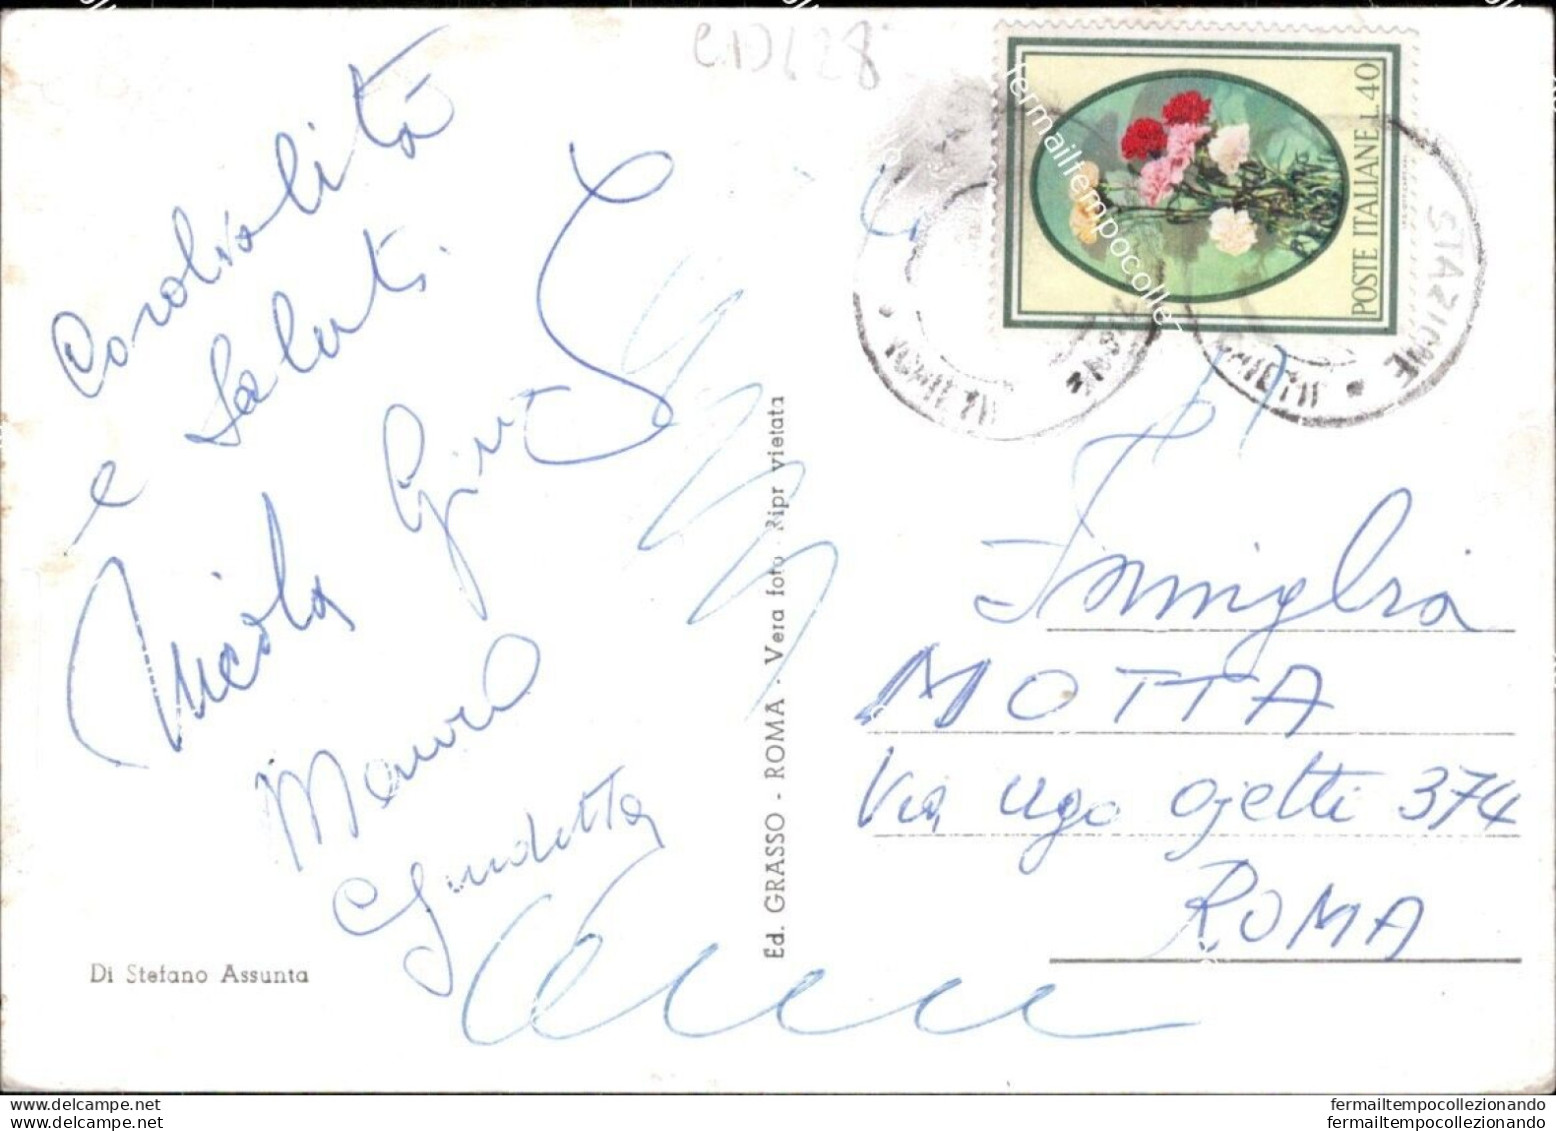 Cordialità
e Saluti
Nicola Gino
Mauro
Giuditta
Di Stefano Assunta
Ed. GRASSO - ROMA - Vera foto - Ripr vietata
POSTE ITALIANE L. 40
STAZIONE
CHIETI
fermailtempocollez
Famiglia
MOTTA
Via Ugo Ojetti 374
ROMA
www.delcampe.net
www.delcampe.net
fermailtempocollezionando
fermailtempocollezionando